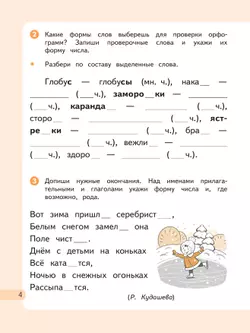 2 Какие формы слов выберешь для проверки орфо-
грамм? Запиши проверочные слова и укажи их
форму числа.
• Разбери по составу выделенные слова.
Глобус — глобусы (мн. ч.), нака__ —
__ (__ ч.), заморо__ки — __
(__ ч.), каранда__ — __
(__ ч.), ско__ — __ (__ ч.), яст-
ре__ки — __ (__ ч.), бра__ —
__ (__ ч.), вежли__ — __
(__ ч.), здоро__ — __ (__ ч.).
3 Допиши нужные окончания. Над именами прилага-
тельными и глаголами укажи форму числа и, где
возможно, рода.
Вот зима пришл__ серебрист__,
Белым снегом замел__ она
Поле чист__.
Днём с детьми на коньках
Всё ката__тся,
Ночью в снежных огоньках
Рассыпа__тся.
(Р. Кудашева)
4